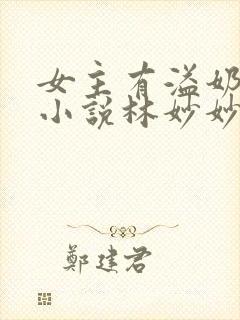 女主有溢奶
小說林妙妙
鄭建君